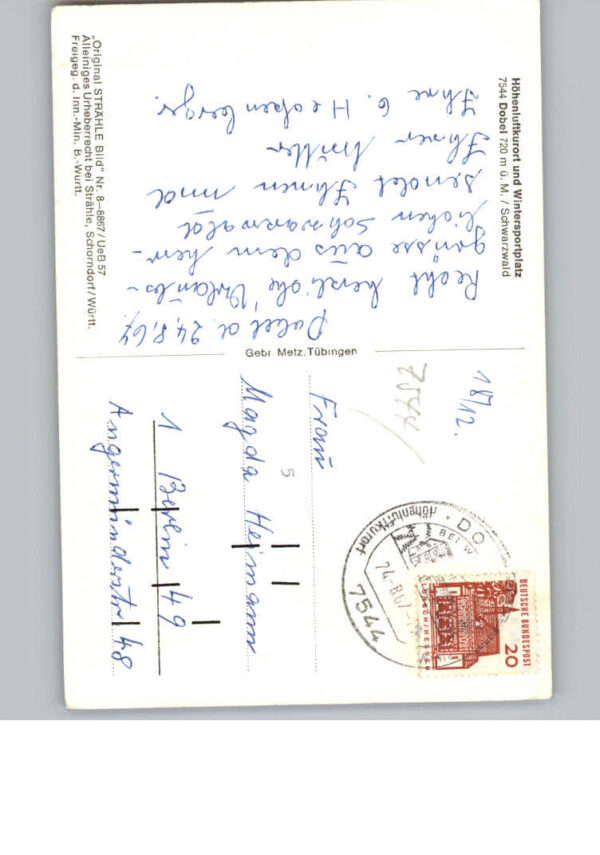 Höhenluftkurort und Wintersportplatz
7544 Dobel 720 m ü. M. / Schwarzwald
Dobel d. 24.8.67
Recht herzliche Urlaubs-
grüsse aus dem herr-
lichen Schwarzwald
sendet Ihnen und
Ihrer Mutter
Ihre
"Original STRÄHLE Bild" Nr. 8-8867/UeB57
Alleiniges Urheberrecht bei Strähle, Schorndorf/Württ.
Freigeg. d. Inn.-Min. B.-Württ.
Gebr. Metz, Tübingen
18/12.
7544
Frau
Magda Heimann
5
1 Berlin 49
Angermünderstr. 48
7544 DO
Höhenluftkurort
24.-8.67
DEUTSCHE BUNDESPOST
20
LORSCH/HESSEN